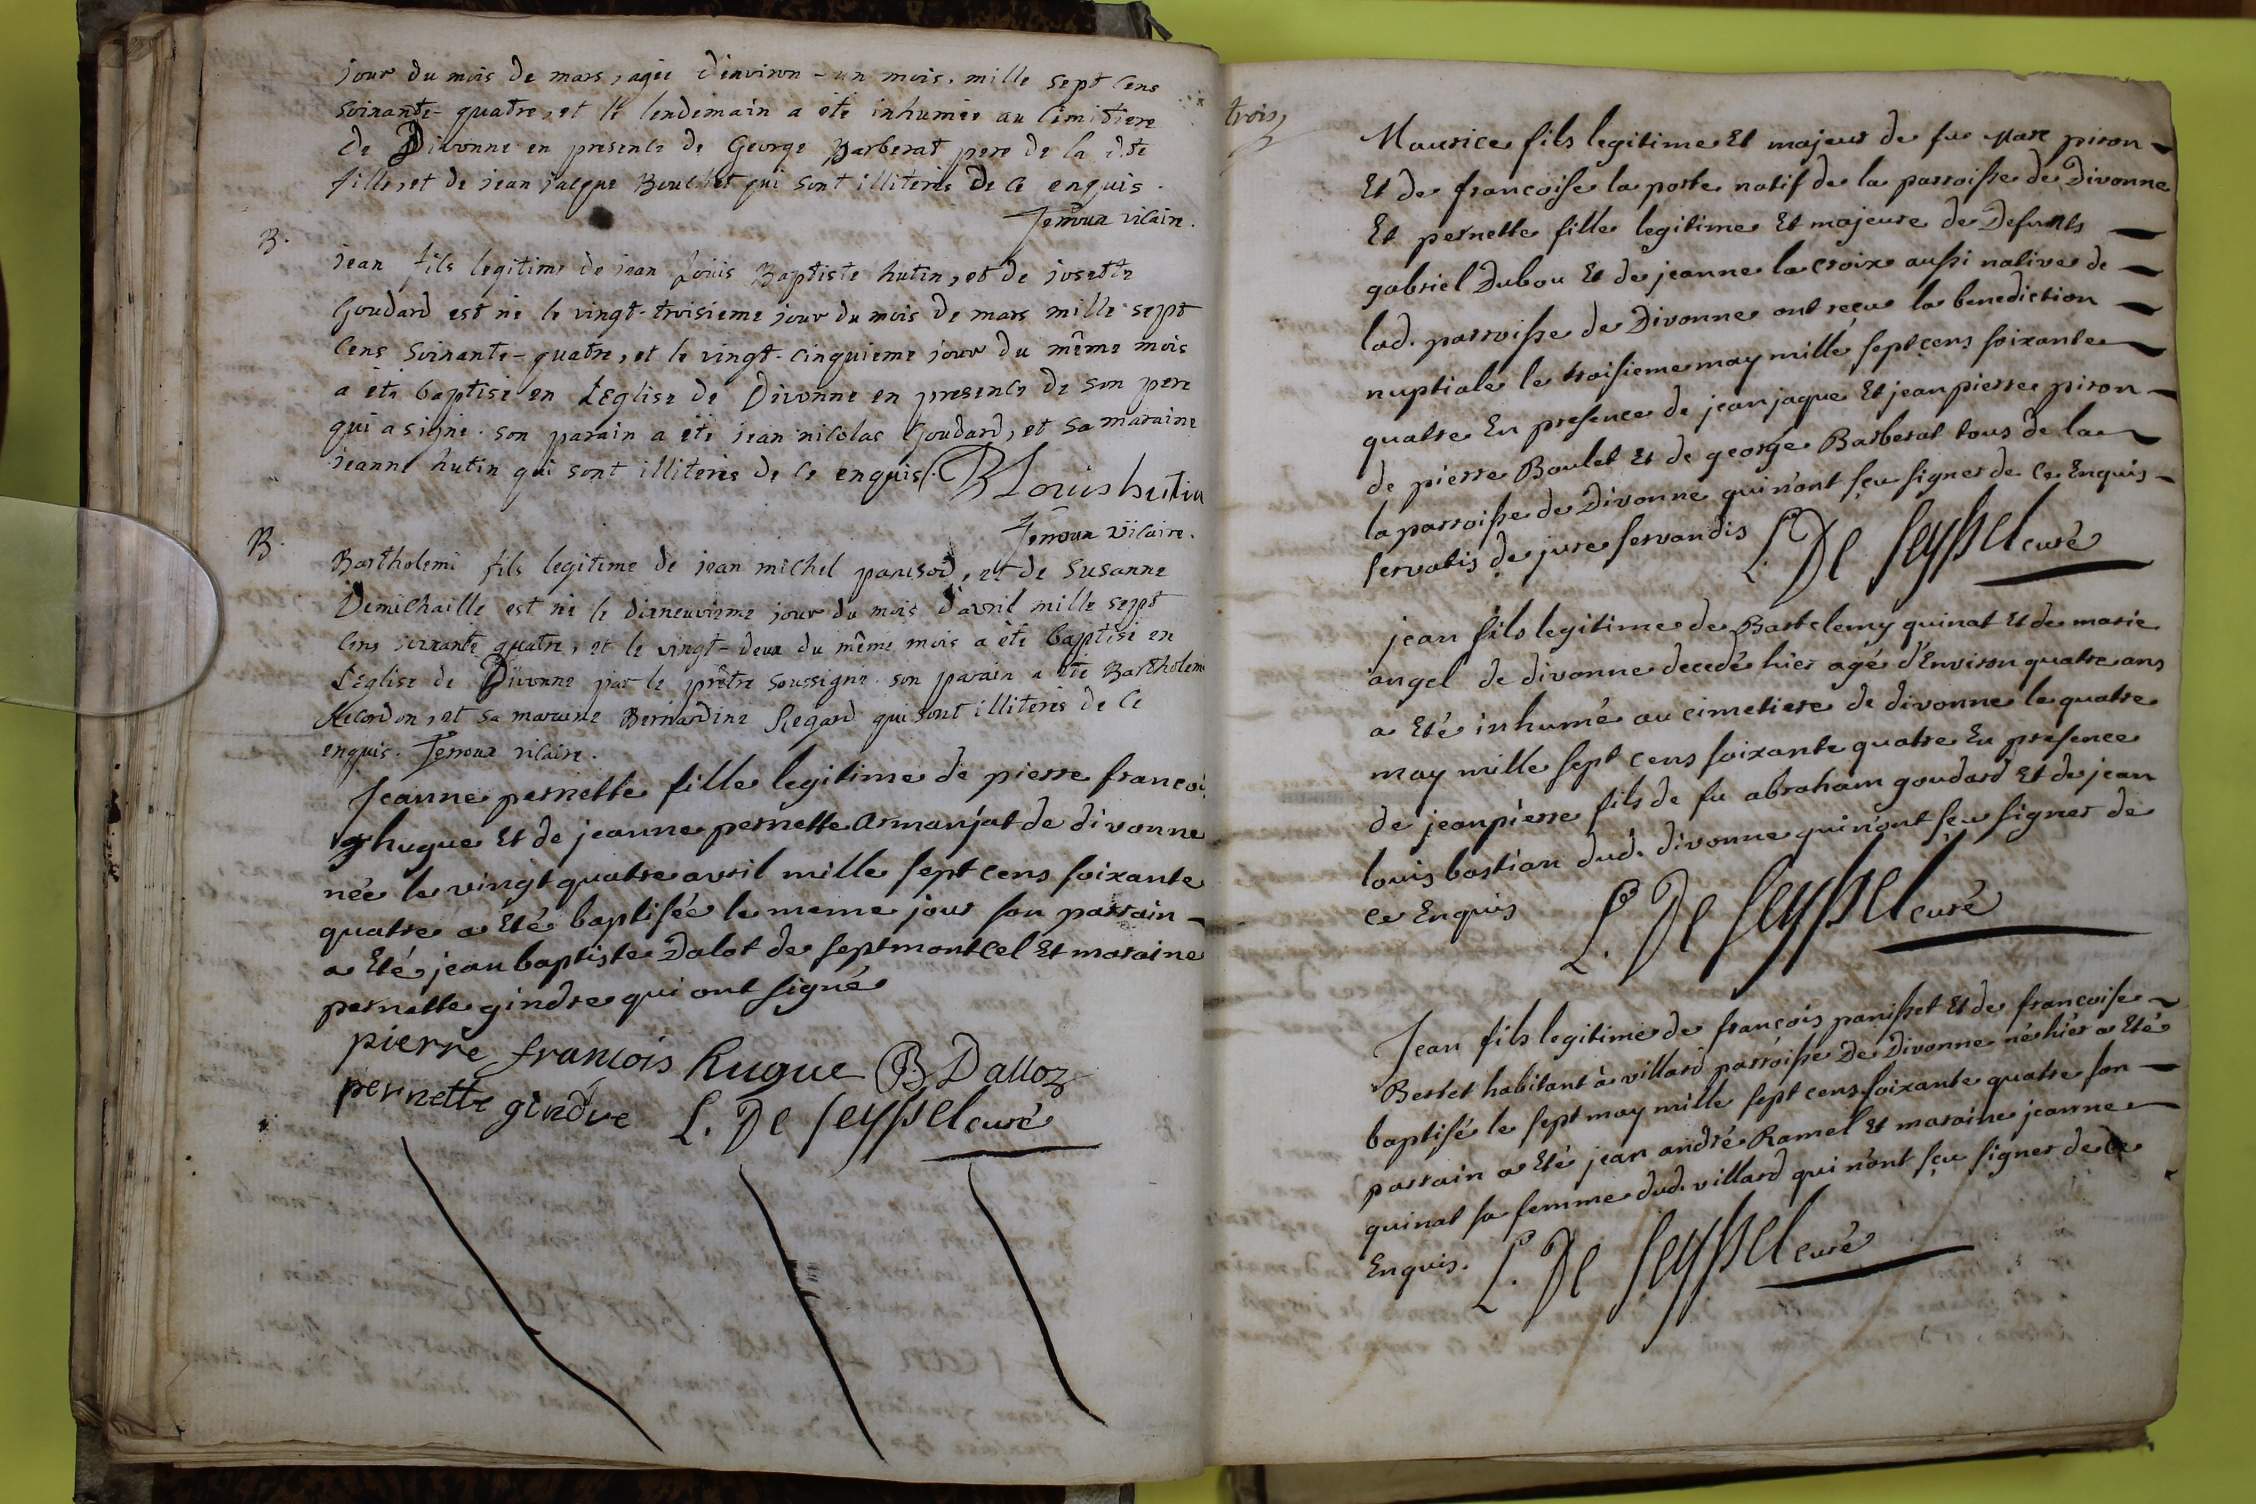 jour du mois de mars, agée d'environ un mois, mille sept cens
soixante-quatre, et le lendemain a été inhumée au cimitiere
de Divonne en presence de George Barberat pere de la d.te
fille, et de jean jacque Bouchet qui sont illiterés de ce enquis.
Jenoux vicaire.
B.
jean fils legitime de jean Loüis Baptiste hutin, et de josette
Goudard est né le vingt-troisieme jour du mois de mars mille sept
cens soixante-quatre, et le vingt-cinquieme jour du même mois
a été baptisé en L'Eglise de Divonne en presence de son pere
qui a signé. son parain a été jean nicolas Goudard, et sa maraine
jeanne hutin qui sont illiterés de ce enquis.
B Louis hutin
Jenoux vicaire.
B.
Bartholemi fils legitime de jean michel , et de Susanne
Demichaille est né le dixneuvieme jour du mois d'avril mille sept
cens soixante quatre, et le vingt-deux du même mois a été baptisé en
L'église de Divonne par le prêtre soussigné. son parain a été Bartholemi
Recordon, et sa maraine Bernardine Regard qui sont illiterés de ce
enquis. Jenoux vicaire.
Jeanne pernette fille legitime de pierre francoi
hugue Et de jeanne pernette armanjat de divonne
née le vingt quatre avril mille sept cens soixante
quatre a Eté baptisée le meme jour son parrain
a Eté jean baptiste Dalot de septmontcel Et maraine
pernette gindre qui ont signé
pierre francois hugue B Dalloz
pernette gindre L. De Seyssel curé
trois
Maurice fils legitime Et majeur de fu Marc piron
Et de francoise la porte natif de la parroisse de Divonne
Et pernette fille legitime Et majeure de Defunts
gabriel Dubou Et de jeanne la croix aussi native de
lad. parroisse de Divonne ont reçu la benediction
nuptiale le troisieme may mille sept cens soixante
quatre En presence de jean jaque Et jean pierre piron
de pierre Boulet Et de george Barberat tous de la
la parroisse de Divonne qui n'ont sçu signer de ce Enquis
servatis de jure servandis L. De Seyssel curé
jean fils legitime de Bartelemy quinat Et de marie
angel de divonne decedé hier agé d'Environ quatre ans
a Eté inhumé au cimetiere de divonne le quatre
may mille sept cens soixante quatre En presence
de jean pierre fils de fu abraham goudard Et de jean
louis bastian dud. divonne qui n'ont sçu signer de
ce Enquis L. De Seyssel curé
Jean fils legitime de françois panisset Et de francoise
Bertet habitant à villard parroisse De Divonne né hier a Eté
baptisé le sept may mille sept cens soixante quatre son
parrain a Eté jean andré Ramel Et maraine jeanne
quinat sa femme dud. villard qui n'ont sçu signer de ce
Enquis. L. De Seyssel curé